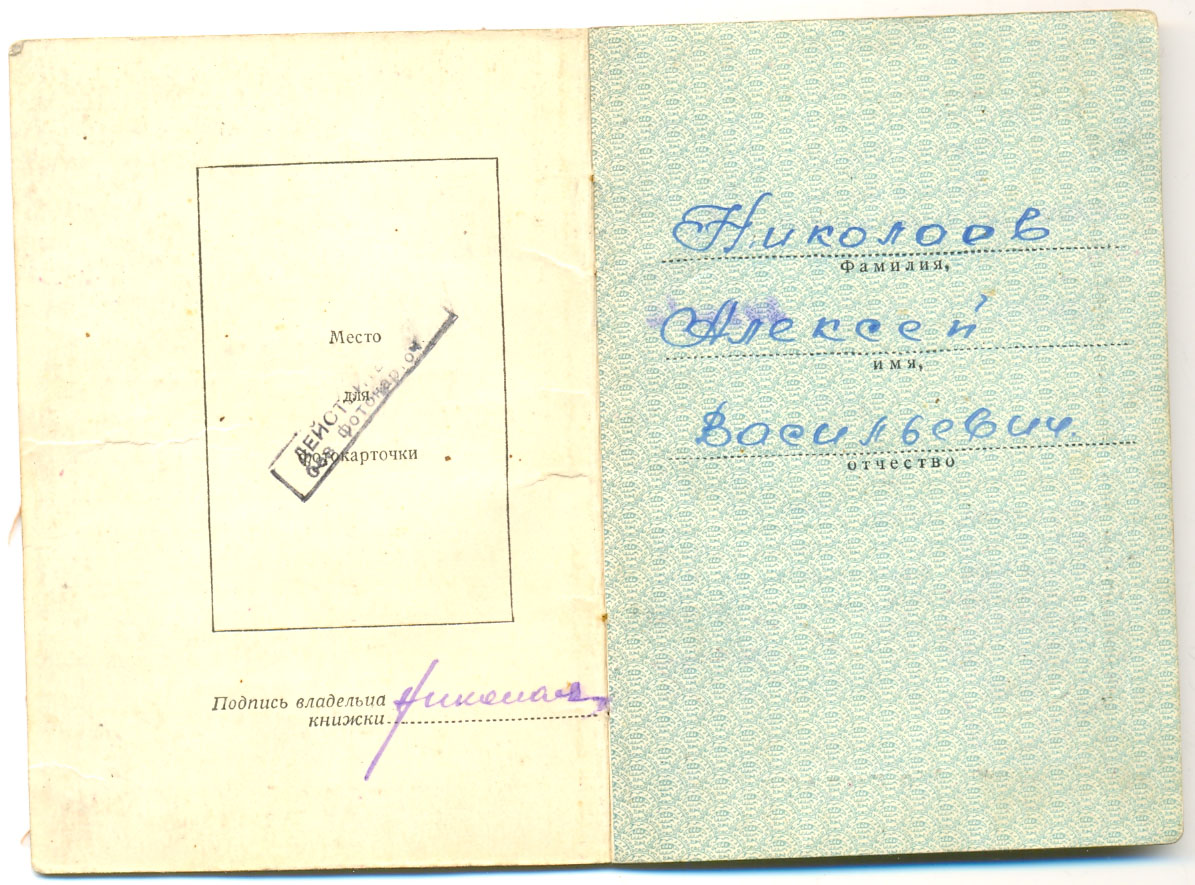 Место
для
фотокарточки
ДЕЙСТ
без фотокарточ.
Подпись владельца
книжки
Николаев
Николаев
Фамилия,
Алексей
имя,
Васильевич
отчество